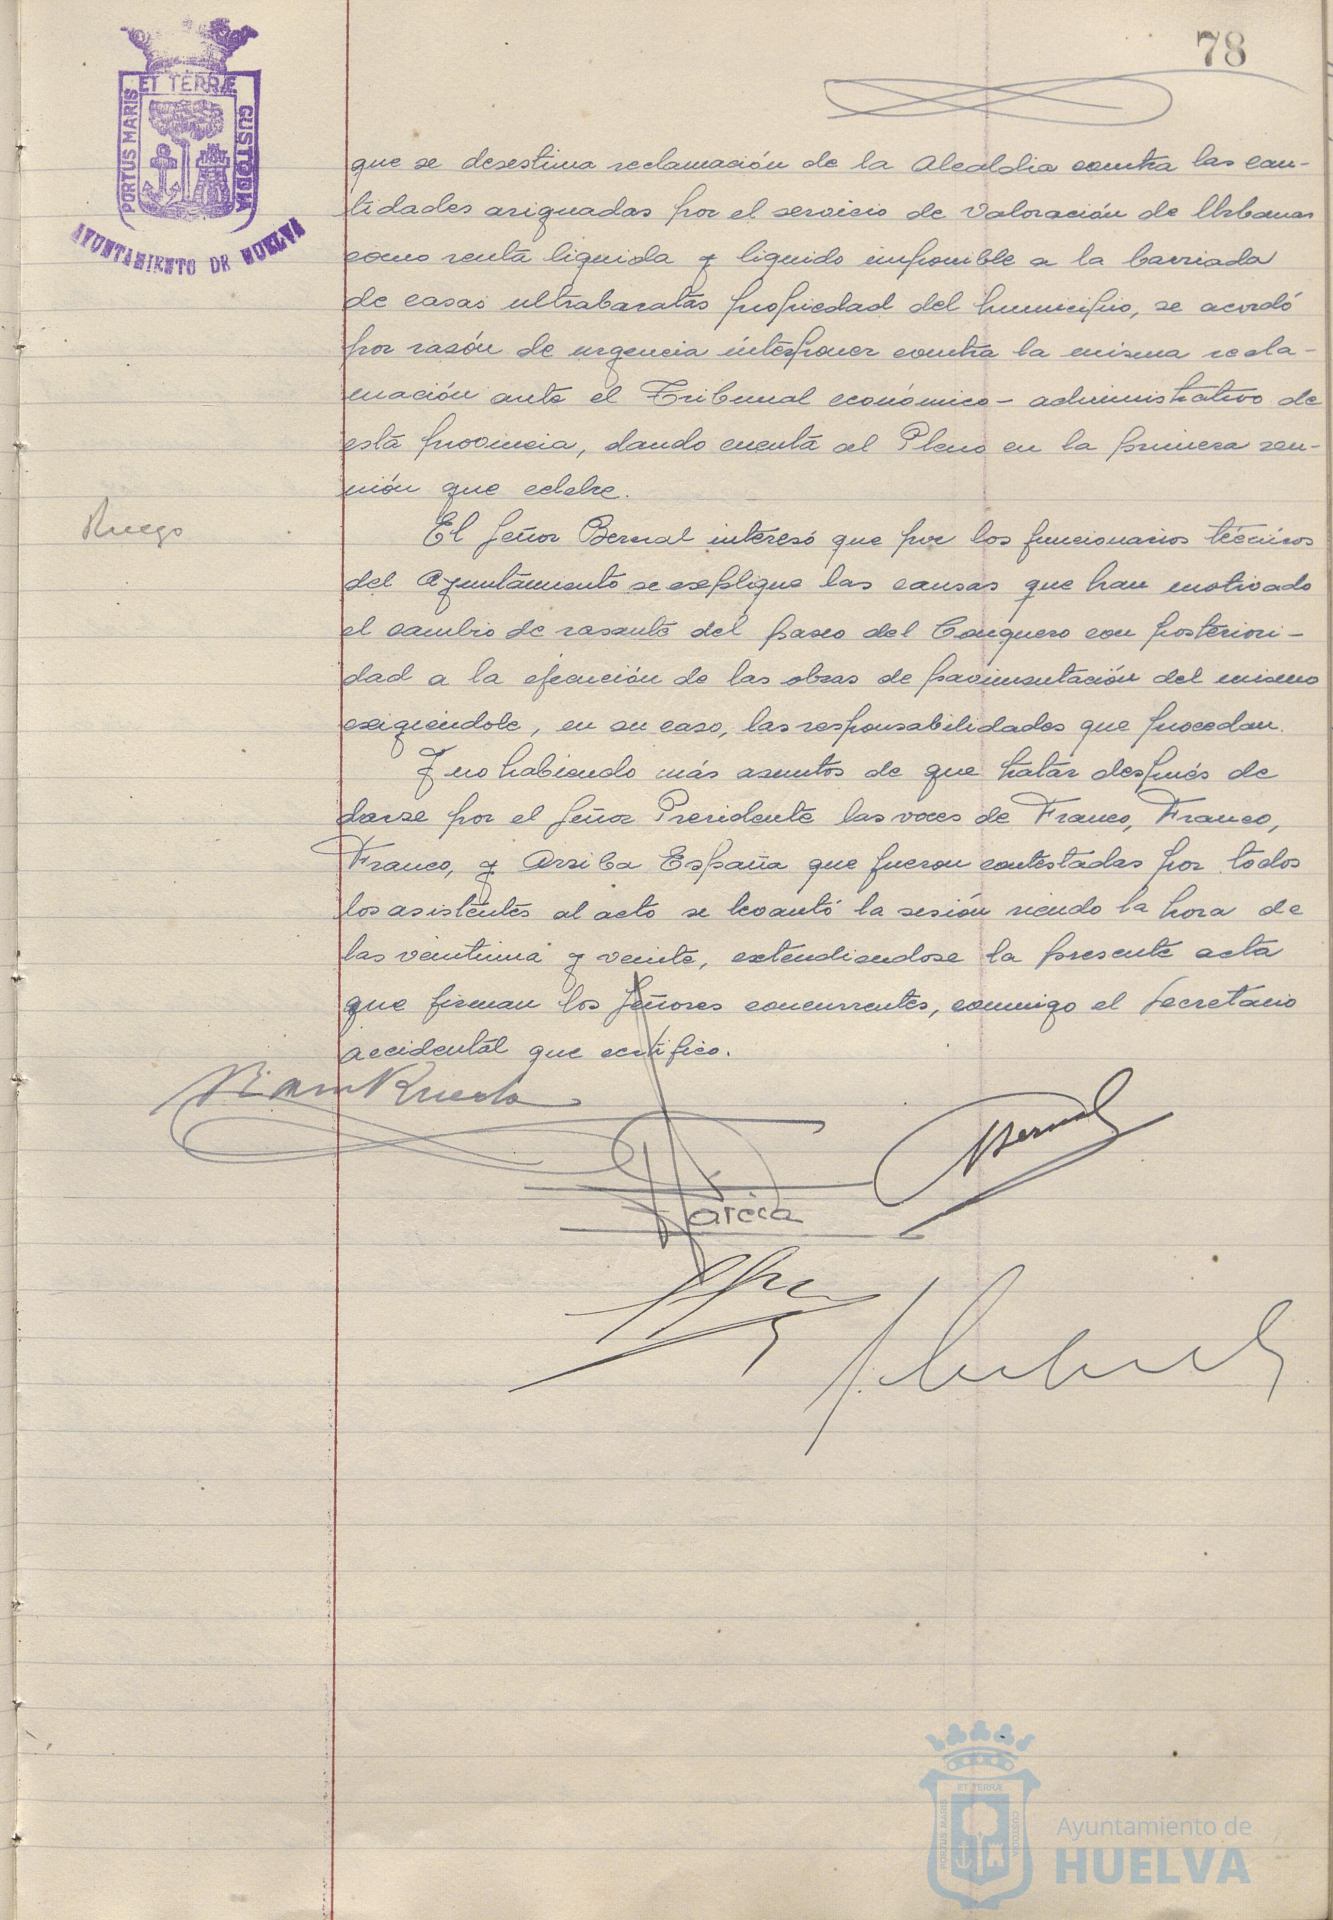 78
PORTUS MARIS ET TERRÆ CUSTODIA
AYUNTAMIENTO DE HUELVA
que se desestima reclamación de la Alcaldia contra las can-
tidades asignadas por el servicio de Valoración de Urbanas
como renta liquida y liquido imponible a la barriada
de casas ultrabaratas propiedad del Municipio, se acordó
por razón de urgencia interponer contra la misma recla-
mación ante el Tribunal económico-administrativo de
esta provincia, dando cuenta al Pleno en la primera reu-
nión que celebre.
Ruego
El Señor Bernal interesó que por los funcionarios técnicos
del Ayuntamiento se explique las causas que han motivado
el cambio de rasante del paseo del Conquero con posteriori-
dad a la ejecución de las obras de pavimentación del mismo
exigiendole, en su caso, las responsabilidades que procedan.
Y no habiendo más asuntos de que tratar después de
darse por el Señor Presidente las voces de Franco, Franco,
Franco, y Arriba España que fueron contestadas por todos
los asistentes al acto se levantó la sesión siendo la hora de
las veintiuna y veinte, extendiendose la presente acta
que firman los Señores concurrentes, conmigo el Secretario
accidental que certifico.
Bernal
Garcia
PORTUS MARIS ET TERRÆ CUSTODIA
Ayuntamiento de
HUELVA